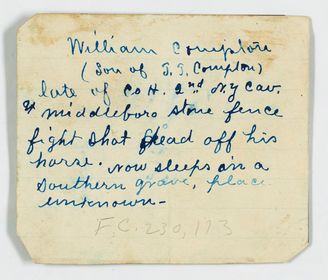 William Compton
(Son of J. J. Compton)
late of Co H. 2nd N.Y Cav.
at middleboro stone fence
fight shot dead off his
horse. now sleeps in a
southern grave, place
unknown-
F.C. 230,173